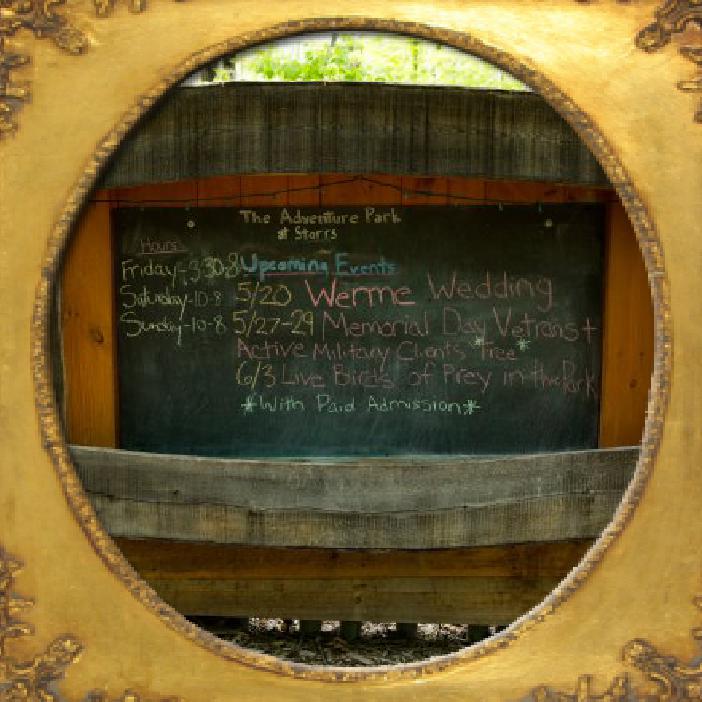 The Adventure Park
at Storrs
Hours:
Friday-3:30-8
Saturday-10-8
Sunday-10-8
Upcoming Events
5/20 Werme Wedding
5/27-29 Memorial Day Vetrans+
Active Military Clients *free*
6/3 Live Birds of Prey in the Park
*With Paid Admission*